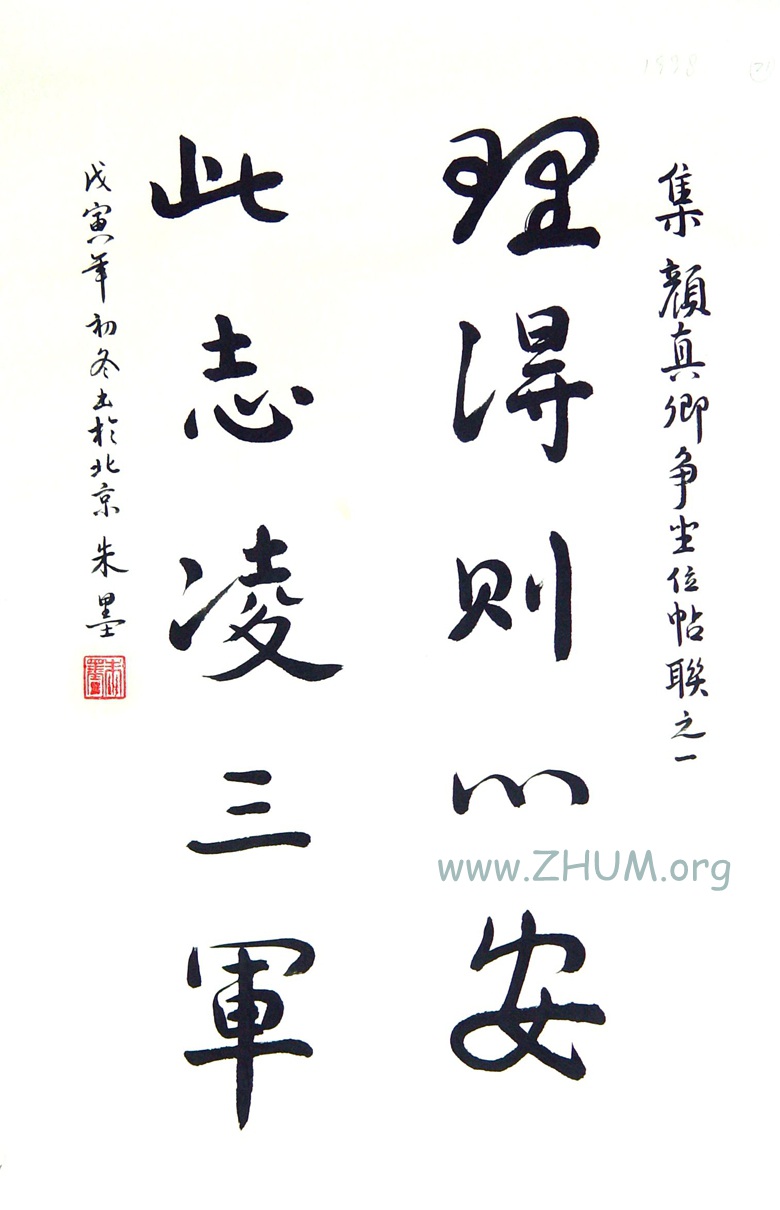 集顔真卿争坐位帖聯之一
理得则心安
此志凌三軍
戊寅年初冬书於北京 朱墨
朱墨
www.ZHUM.org
1998